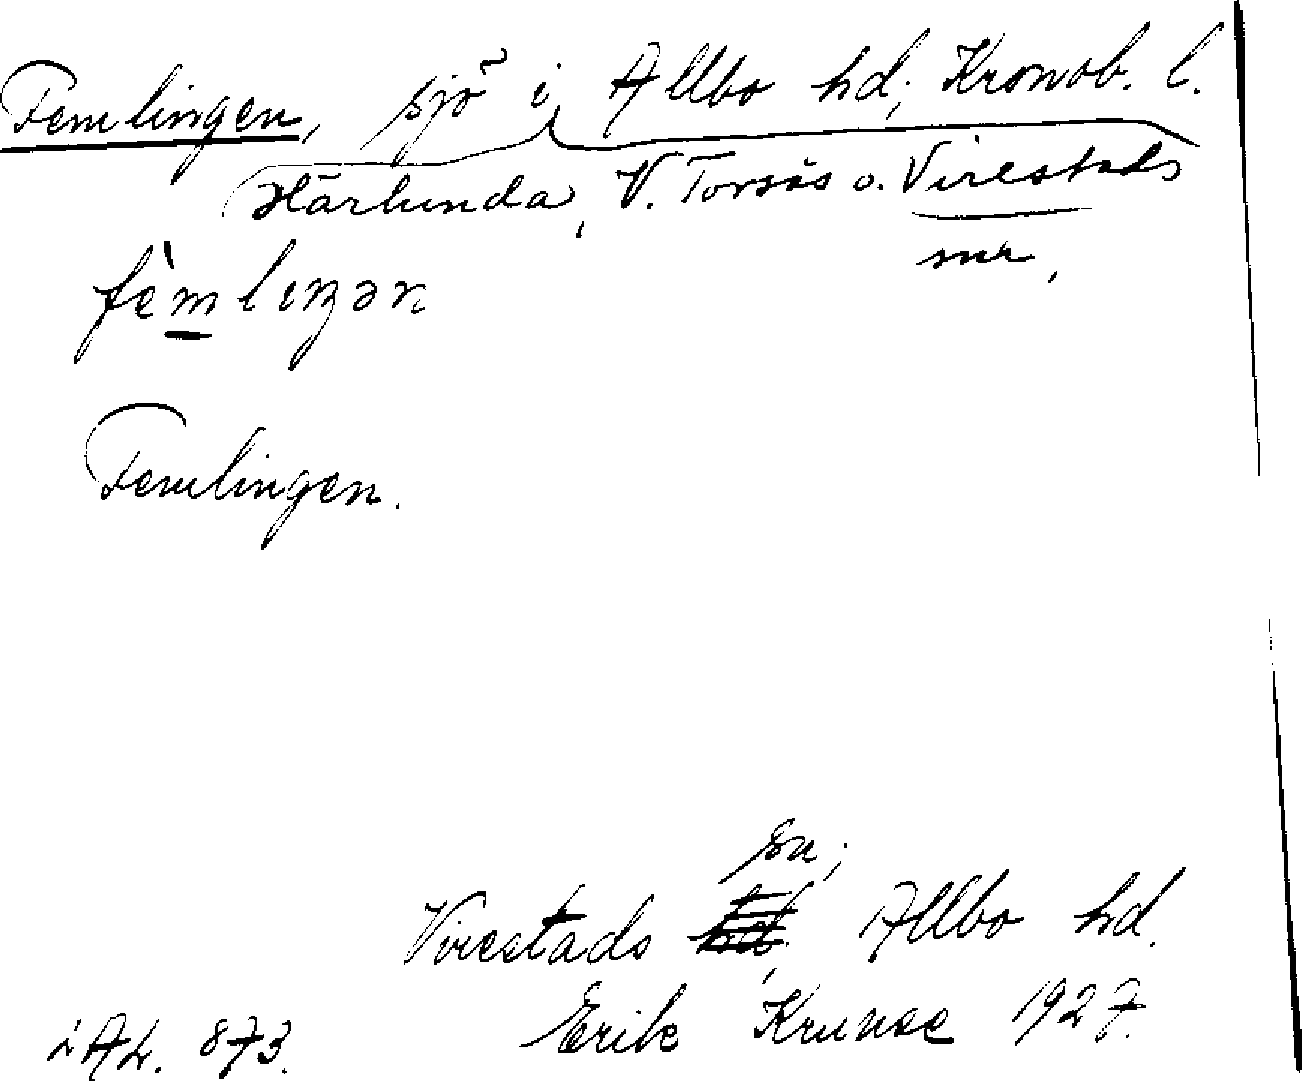 Femlingen, sjö i Allbo hd, Kronob. l.
Härlunda, V. Torsås o. Virestads
snr,
fèmlıŋən
Femlingen.
sn,
Virestads hd, Allbo hd.
Erik Krunee 1927.
873.